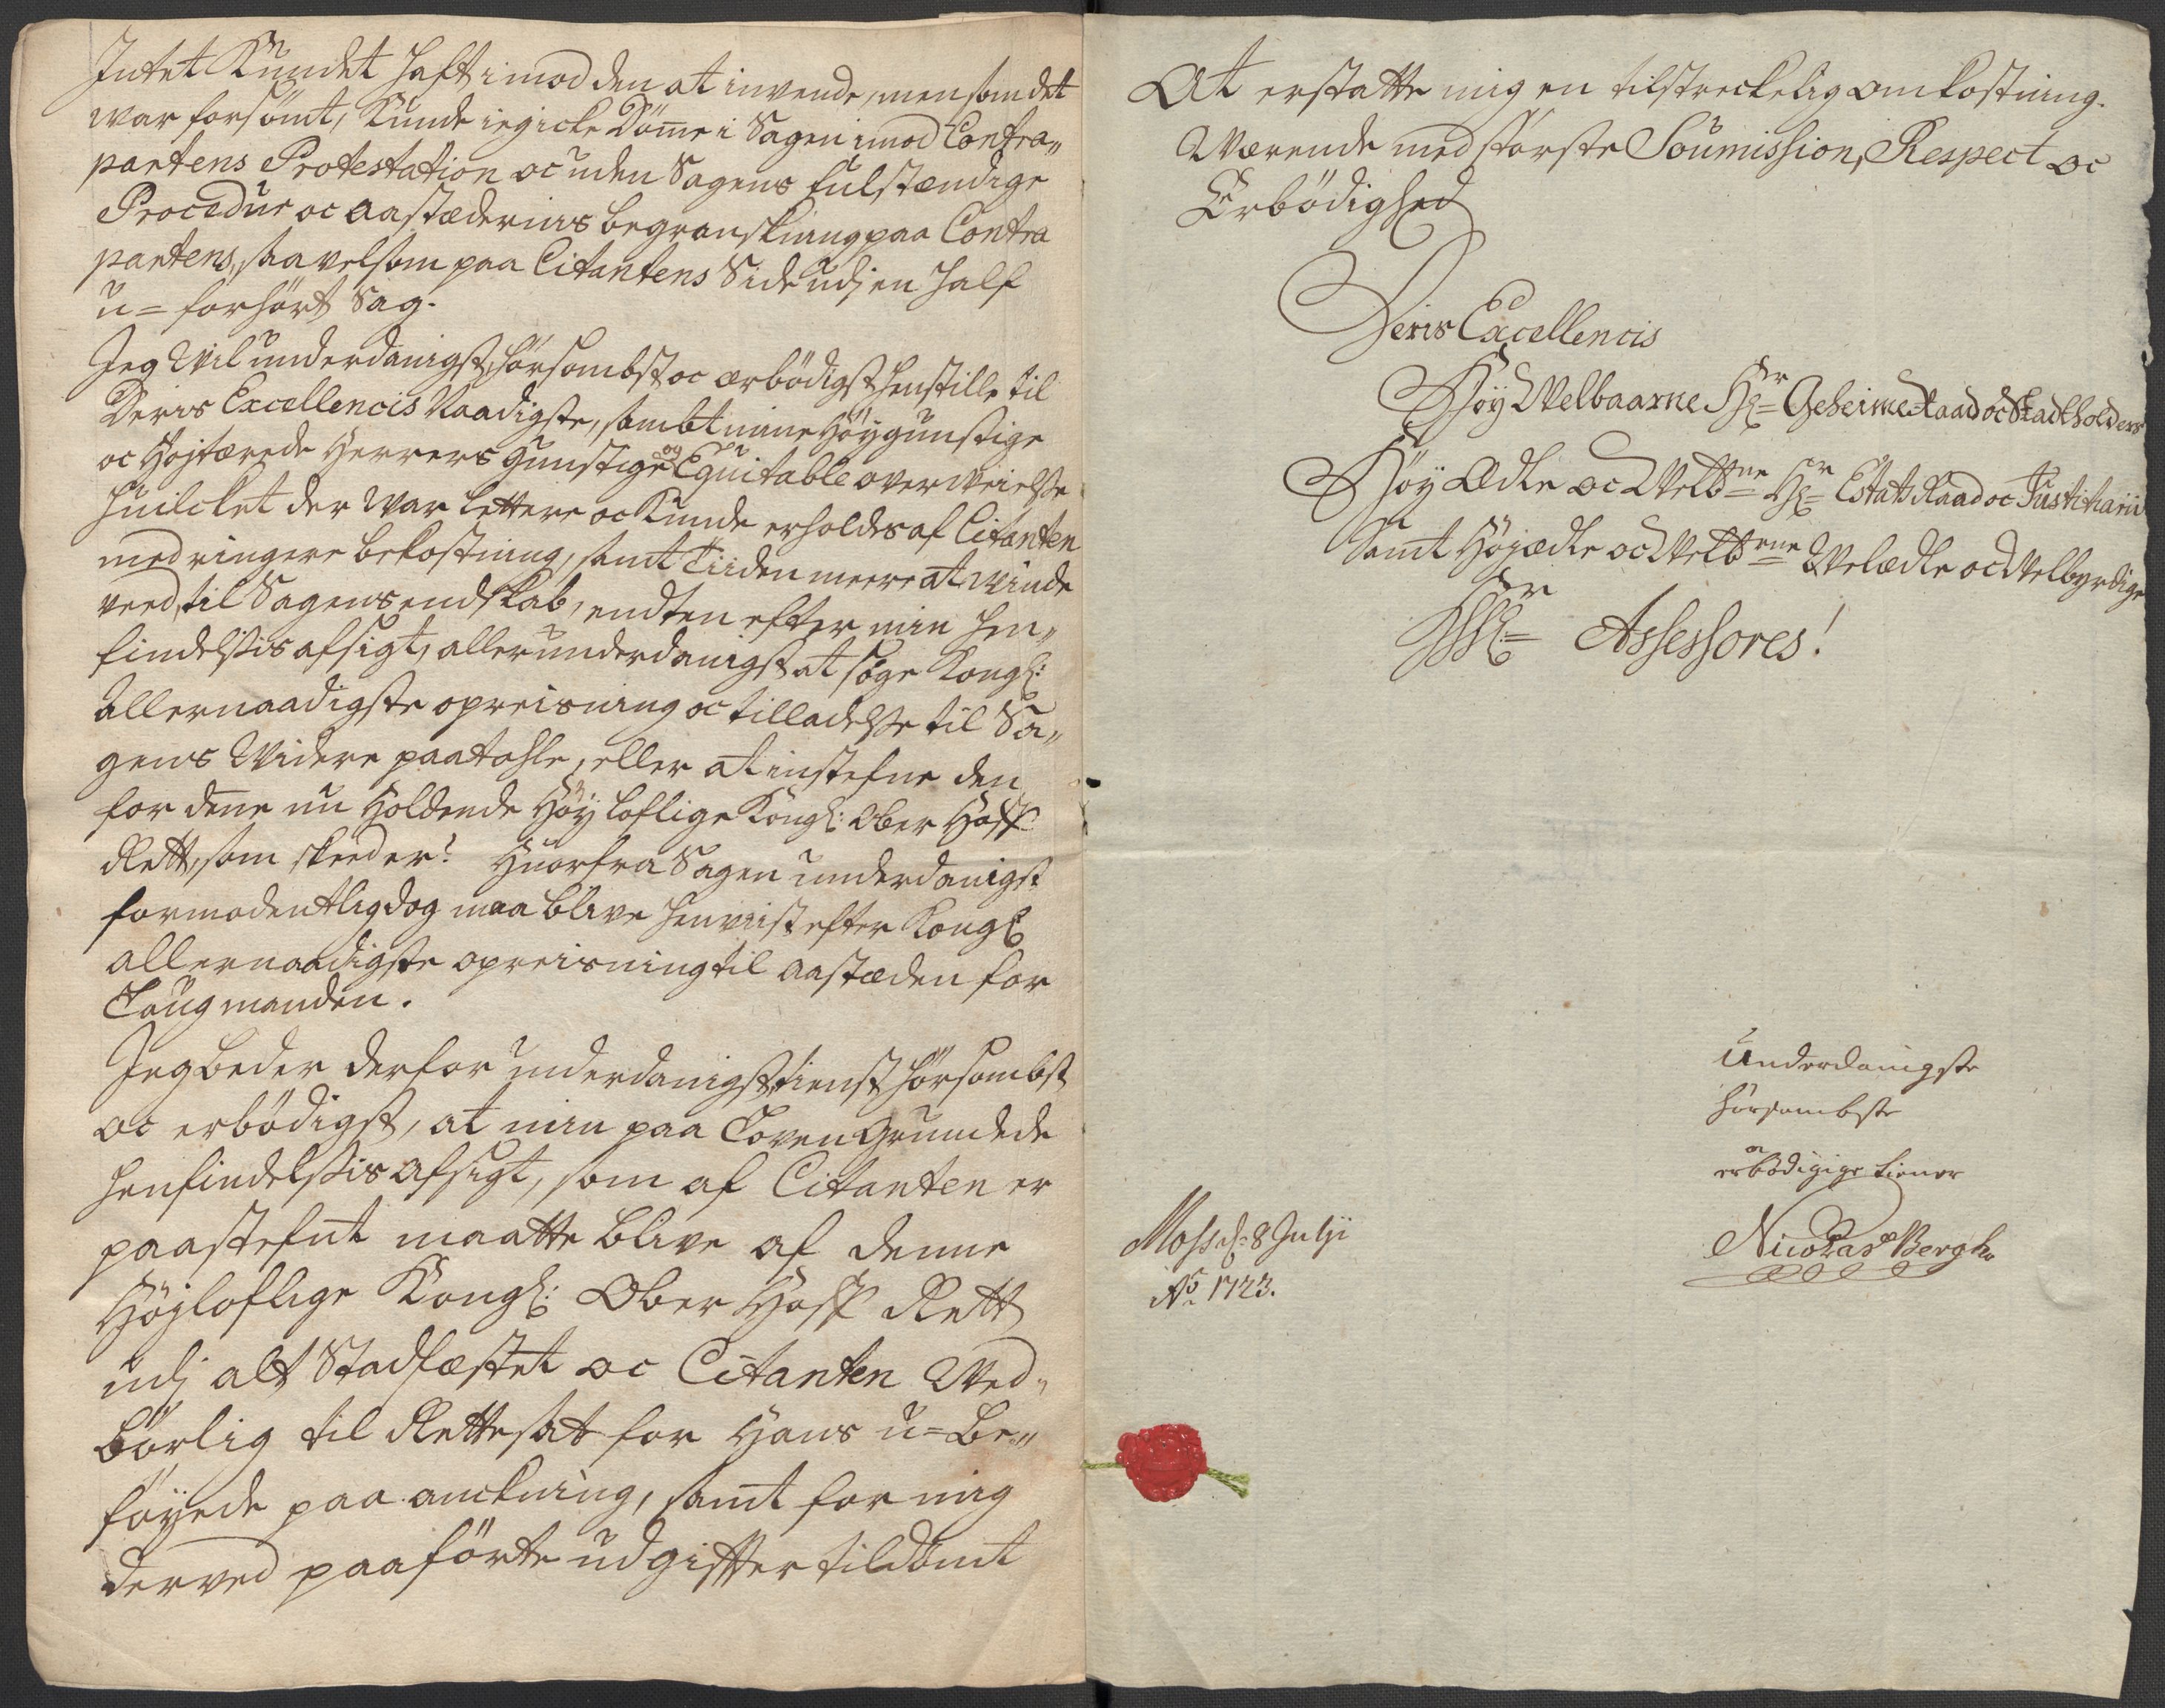 Intet Kundet hafft imod den at invende, men som det
war forsömt, Kunde ieg icke Döme i Sagen imod Contra„
partens Protestation oc uden Sagens fulstændige
Procedur oc aastædernis begranskning paa Contra
partens, saavelsom paa Citantens Side udj en half
u=forhört Sag.
Jeg Vil underdanigst, hörsombst oc ærbödigst henstille til
Deris Excellencis Naadigste, sambt mine Höygunstige
oc Höjtærede Herrers gunstige og Equitable overveielse
huilcket der War lettere oc Kunde erholdes af Citanten
med ringere bekostning, samt Tiiden meere at vinde
veed, til Sagens endskab, endten efter min hen„
findelsis afsigt, allerunderdanigst at söge Kongl:
Allernaadigste opreisning oc tilladelse til Sa„
gens Widere paatahle, eller at instefne den
for dene nu Holdende Höyloflige Kongl: Ober Hoff
Rett, som skeed er? Huorfra Sagen underdanigst
formodentlig dog maa blive henviist efter Kongl
allernaadigste opreisning til aastæden for
Laugmanden.
Jeg beder derfor underdanigst, tienst hörsombst
oc erbödigst, at min paa Loven Grundede
henfindelsis afsigt, som af Citanten er
paastefnt maatte blive af denne
Höyloflige Kongl: Ober Hoff Rett
udj alt Stadfæstet oc Citanten Ved„
börlig til Rettesat for Hans u=be„
föyede paa anckning, samt for mig
derved paaförte udgiffter tildömt
At erstatte mig en tilstreckelig omkostning.
Værende med störste Soumission, Respect oc
Erbödighed
Deris Excellencis
Höy Velbaarne Hr Geheime Raad oc Stadtholders
Höy Ædle oc Velbne Hr Estats Raad oc Justitiarii
Samt Höyædle oc Velbrne Velædle oc Velbyrdige
Hr Assessores!
Underdanigste
hörsombste
oc
erbödigige tiener
Nicolas Bergh
Moss d: 8 Julji
Ao 1723.